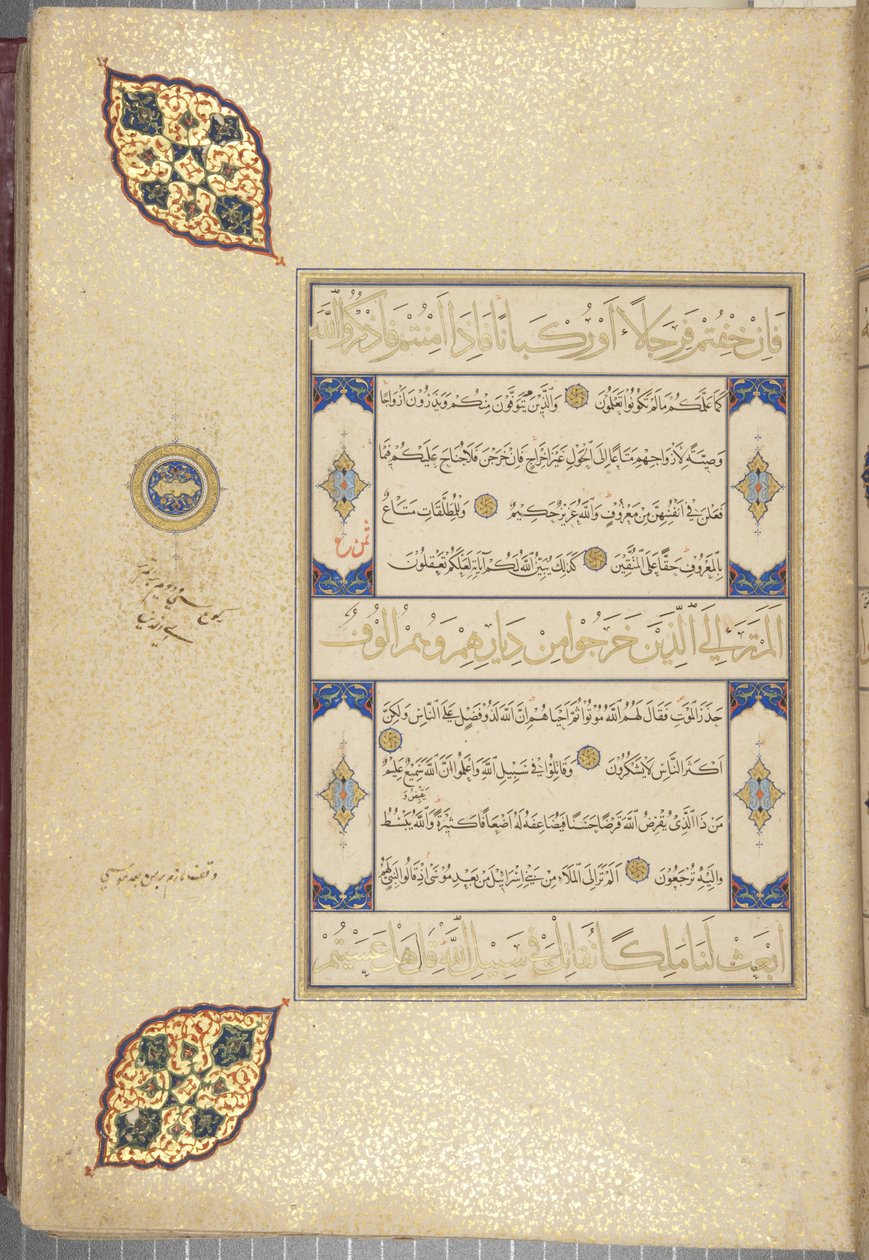 فَاِنْ خِفْتُمْ فَرِجَالًا اَوْ رُكْبَانًا فَاِذَا اَمِنْتُمْ فَاذْكُرُوا اللَّهَ
كَمَا عَلَّمَكُمْ مَا لَمْ تَكُونُوا تَعْلَمُونَ وَالَّذِينَ يُتَوَفَّوْنَ مِنْكُمْ وَيَذَرُونَ اَزْوَاجًا
وَصِيَّةً لِاَزْوَاجِهِمْ مَتَاعًا اِلَى الْحَوْلِ غَيْرَ اِخْرَاجٍ فَاِنْ خَرَجْنَ فَلَا جُنَاحَ عَلَيْكُمْ فِيمَا
فَعَلْنَ فِي اَنْفُسِهِنَّ مِنْ مَعْرُوفٍ وَاللَّهُ عَزِيزٌ حَكِيمٌ وَلِلْمُطَلَّقَاتِ مَتَاعٌ
بِالْمَعْرُوفِ حَقًّا عَلَى الْمُتَّقِينَ كَذَلِكَ يُبَيِّنُ اللَّهُ لَكُمْ آيَاتِهِ لَعَلَّكُمْ تَعْقِلُونَ
اَلَمْ تَرَ اِلَى الَّذِينَ خَرَجُوا مِنْ دِيَارِهِمْ وَهُمْ اُلُوفٌ
حَذَرَ الْمَوْتِ فَقَالَ لَهُمُ اللَّهُ مُوتُوا ثُمَّ اَحْيَاهُمْ اِنَّ اللَّهَ لَذُو فَضْلٍ عَلَى النَّاسِ وَلَكِنَّ
اَكْثَرَ النَّاسِ لَا يَشْكُرُونَ وَقَاتِلُوا فِي سَبِيلِ اللَّهِ وَاعْلَمُوا اَنَّ اللَّهَ سَمِيعٌ عَلِيمٌ
يَقْبِضُ وَ
مَنْ ذَا الَّذِي يُقْرِضُ اللَّهَ قَرْضًا حَسَنًا فَيُضَاعِفَهُ لَهُ اَضْعَافًا كَثِيرَةً وَاللَّهُ يَبْسُطُ
وَاِلَيْهِ تُرْجَعُونَ اَلَمْ تَرَ اِلَى الْمَلَاِ مِنْ بَنِي اِسْرَائِيلَ مِنْ بَعْدِ مُوسَى اِذْ قَالُوا لِنَبِيٍّ لَهُمُ
ابْعَثْ لَنَا مَلِكًا نُقَاتِلْ فِي سَبِيلِ اللَّهِ قَالَ هَلْ عَسَيْتُمْ
ثمن
وقف لازم